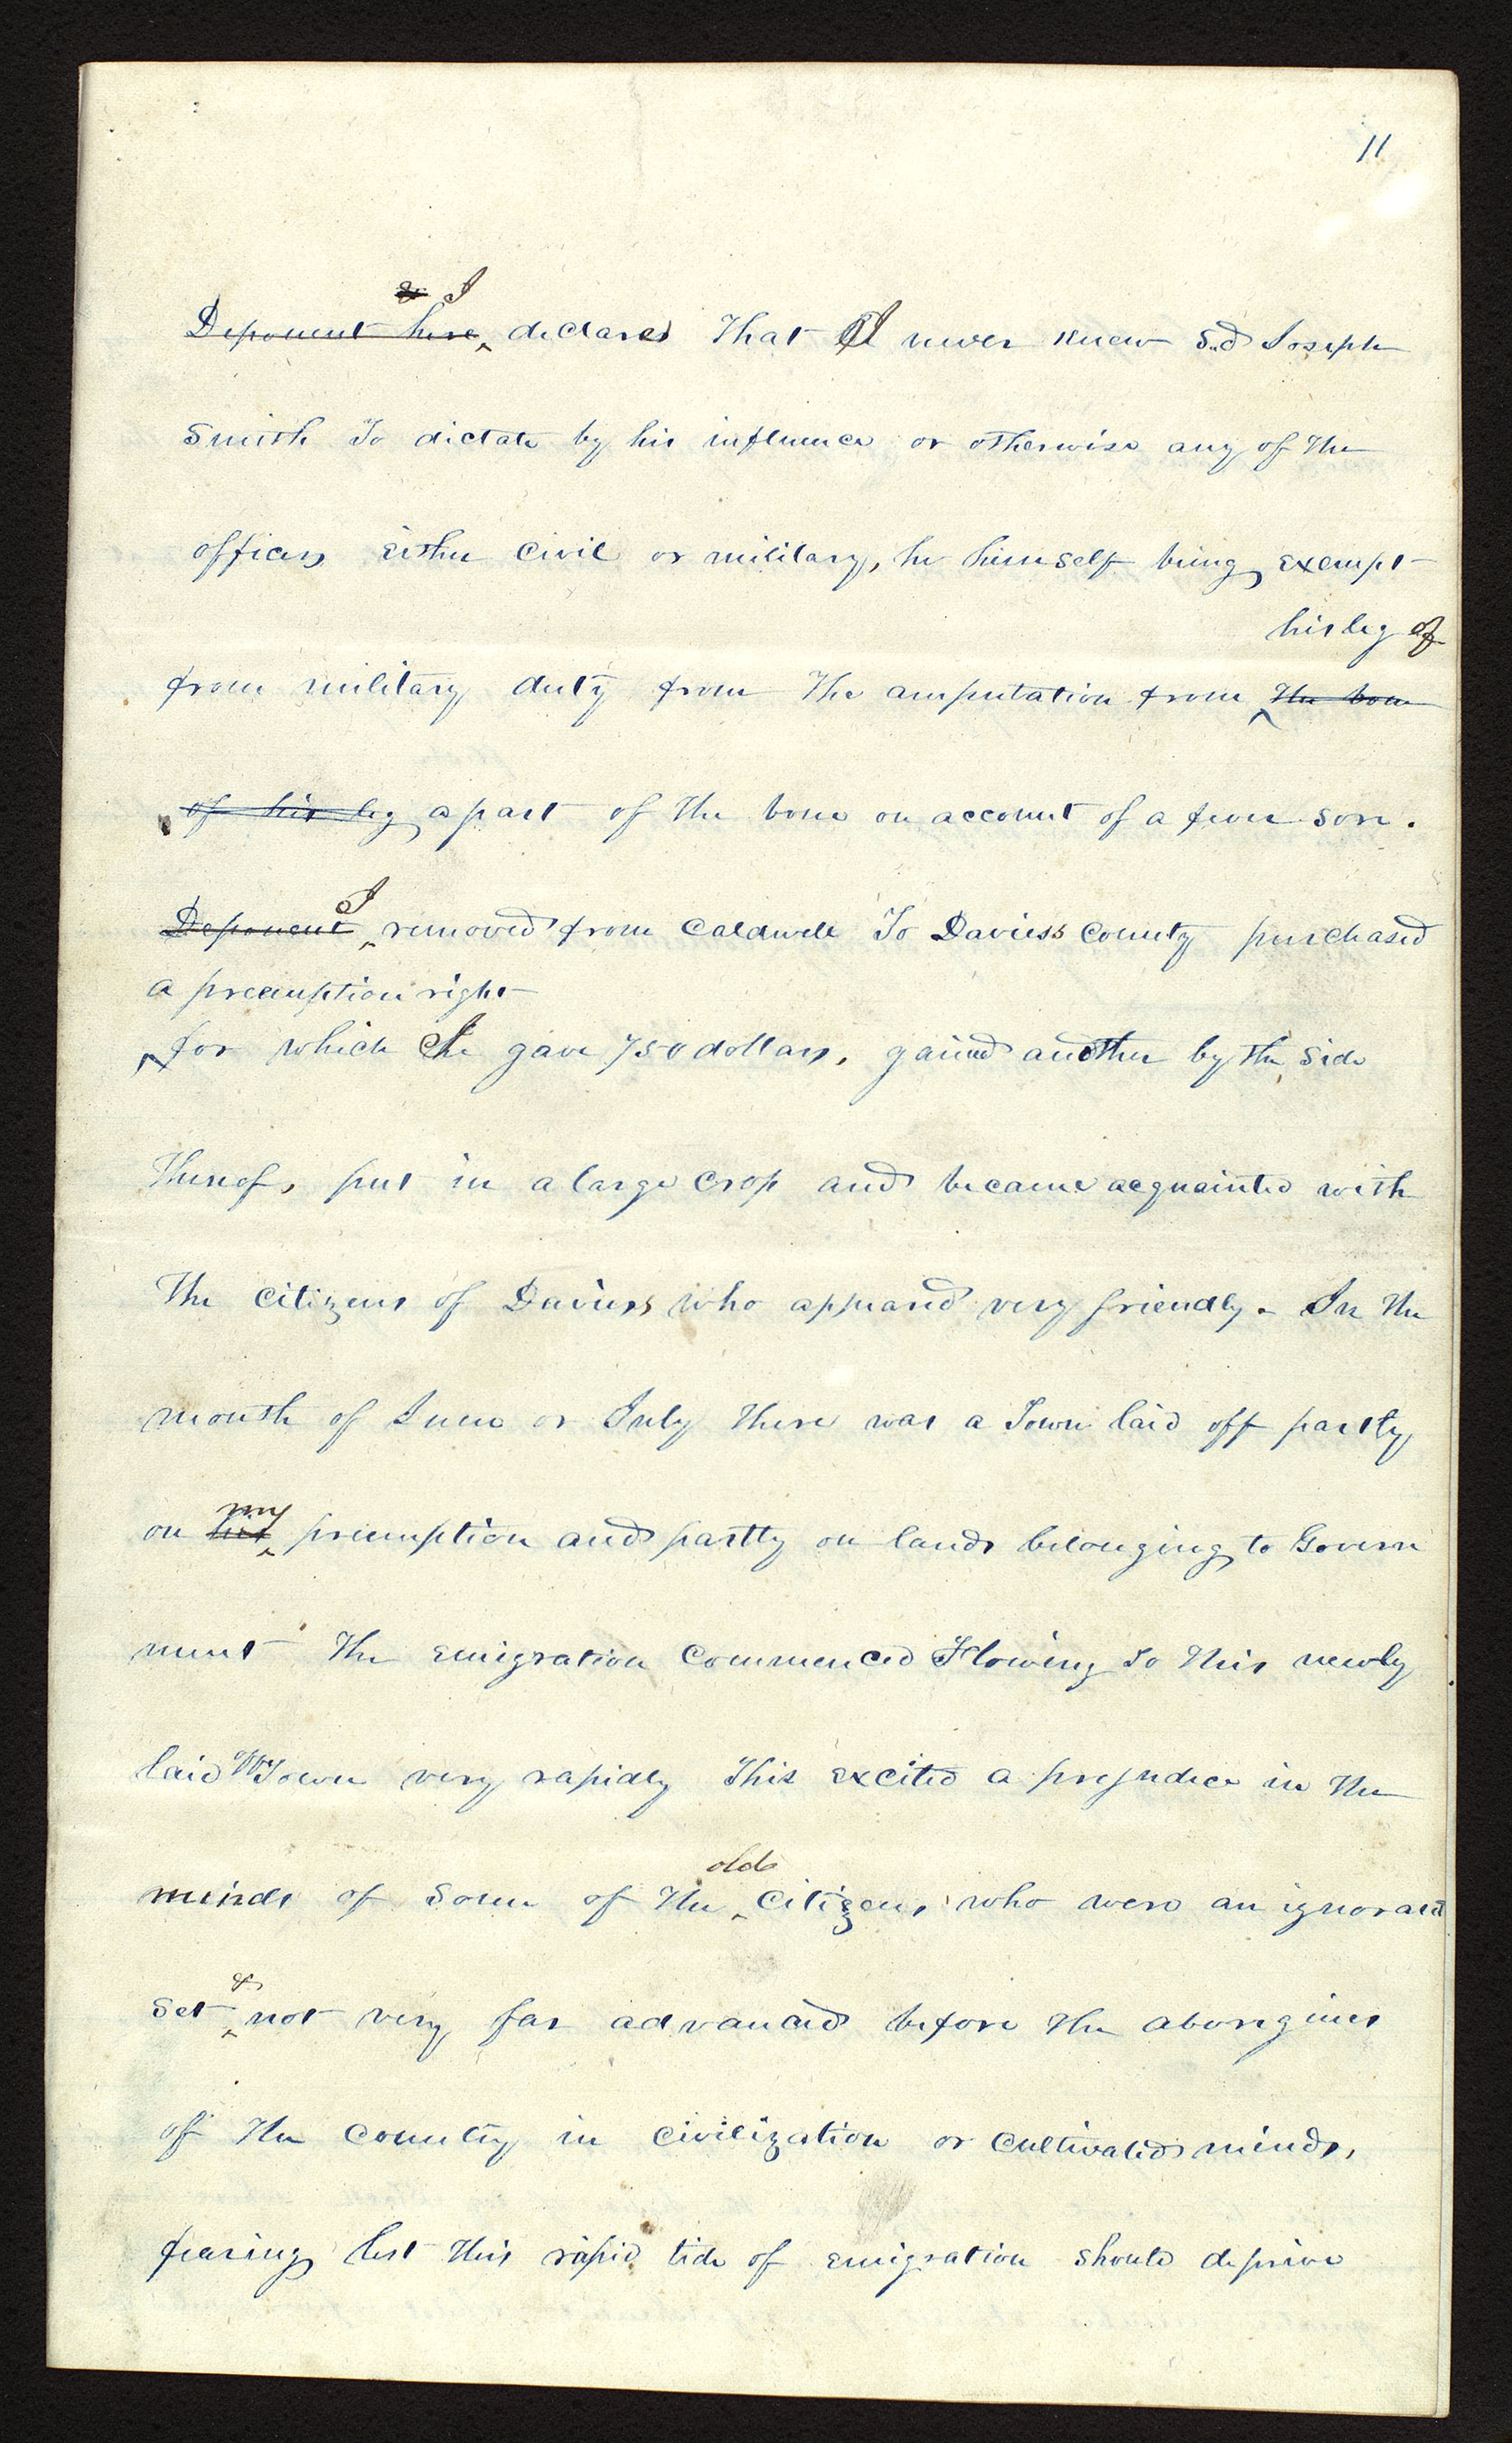 11
& I
Deponent here declares that I never knew Sd Joseph
Smith to dictate by his influence or otherwise any of the
officers either civil or military, he himself being exempt
his leg of
from military duty from the amputation from the bone
of his leg a part of the bone on account of a fever sore.
I
Deponent removed from Caldwell to Daviess County purchased
a preemption right
for which I gave 750 dollars, gained another by the side
thereof, put in a large crop and became acquainted with
the citizens of Daviess who appeared very friendly. In the
month of June or July there was a Town laid off partly
on his my preemption and partly on lands belonging to Govern
ment The emigration commenced Flowing to this newly
laid off Town very rapidly This excited a prejudice in the
minds of some of the old citizens who were an ignorant
set & not very far advanced before the aborigines
of the country in civilization or cultivated minds,
fearing lest this rapid tide of emigration should deprive